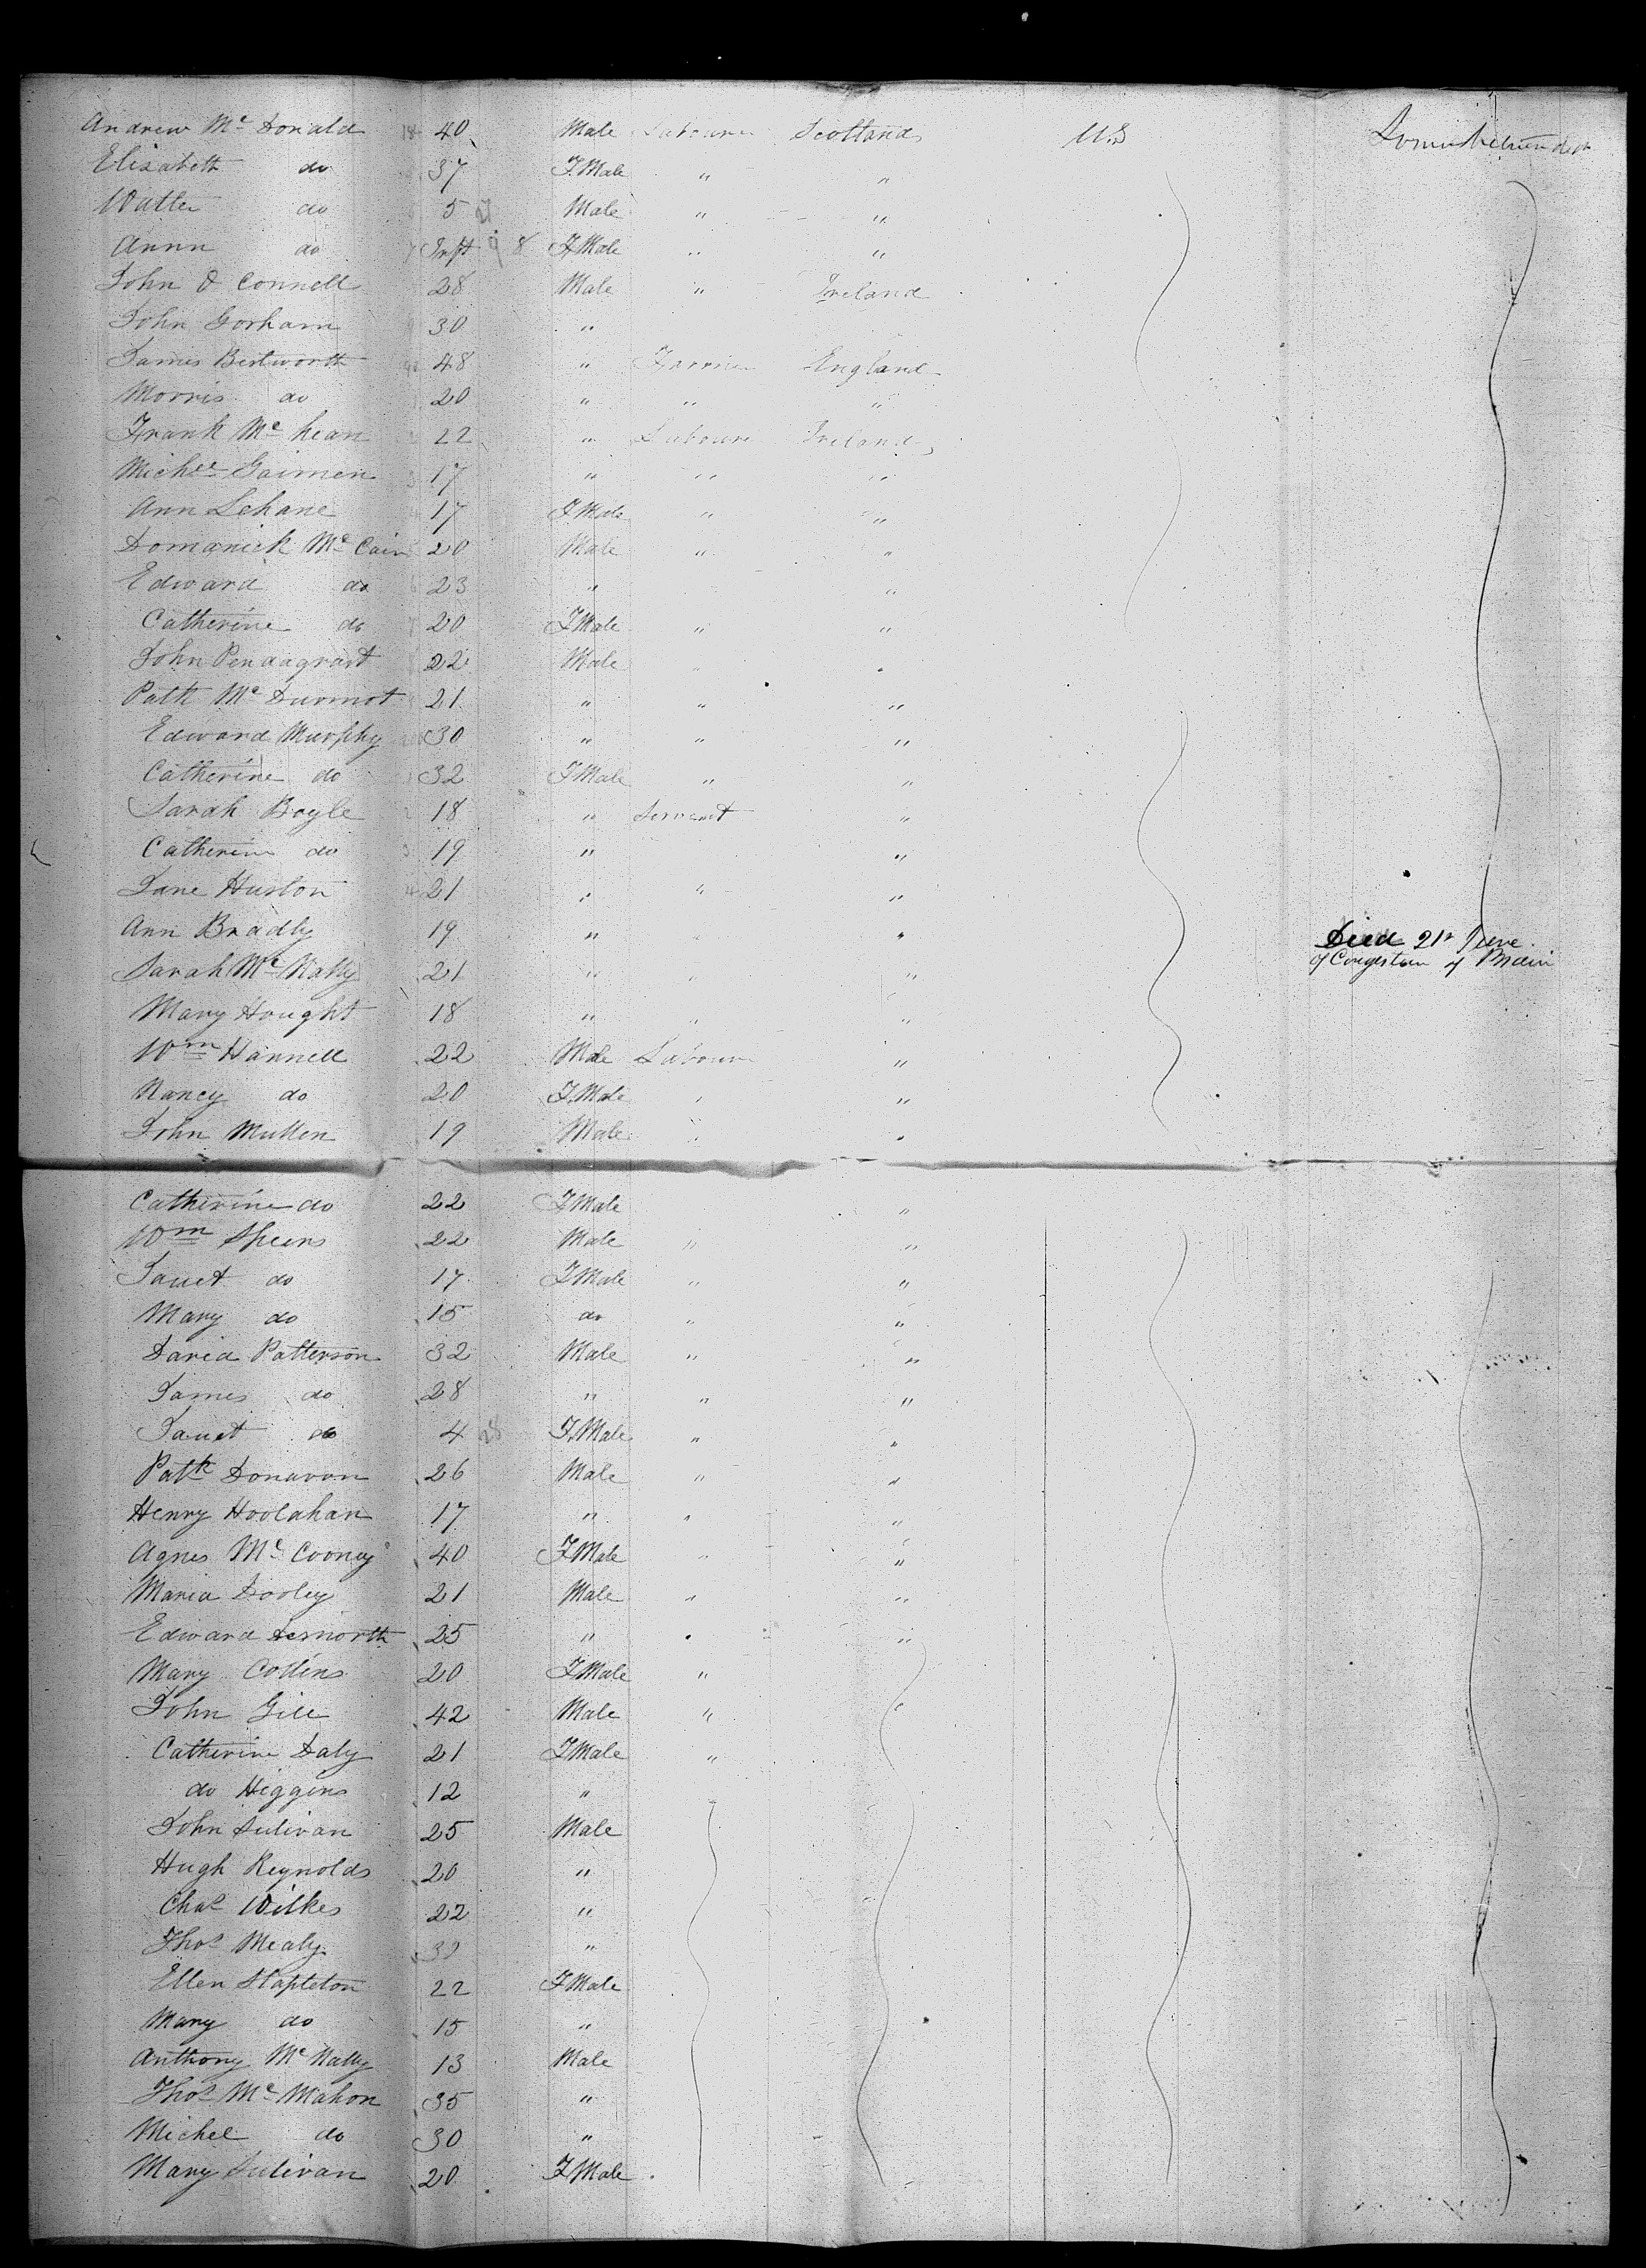 Andrew Mc Donald 40 Male Labourer Scotland U.S
Elizabeth do 37 FMale " "
Walter do 5 Male " "
Annn do Inft FMale " "
John O Connell 28 Male " Ireland
John Gorham 30 "
James Bestworth 48 " England
Morris do 20 " " "
Frank Mc kean 22 " Labourer Ireland
Michel Gaimen 17 " " "
Ann Lehane 17 FMale " "
Domanick Mc Cain 20 Male " "
Edward do 23 " "
Catherine do 20 FMale " "
John Pendagrast 22 Male " "
Patk Mc Durmot 21 " " "
Edward Murphy 30 " " "
Catherine do 32 FMale " "
Sarah Boyle 18 " Servant "
Catherine do 19 " "
Jane Huston 21 " " "
Ann Bradly 19 " " Died 21st June
Sarah Mc Nally 21 " " " of Congestion of Brain
Mary Hought 18 " " "
Wm Hannell 22 Male Labourer "
Nancy do 20 FMale " "
John Mullen 19 Male " "
Catherine do 22 FMale "
Wm Speers 22 Male " "
Janet do 17 FMale " "
Mary do 15 do " "
David Patterson 32 Male " "
James do 28 " " "
Janet do 4 FMale " "
Patk Donavon 26 Male " "
Henry Hoolahan 17 " " "
Agnes Mc Cooney 40 FMale " "
Maria Dooley 21 Male " "
Edward 25 " " "
Mary Collins 20 FMale "
John Gill 42 Male "
Catherine Daly 21 FMale "
do Higgins 12 "
John Sulivan 25 Male
Hugh Reynolds 20 "
Chas Wilkes 22 "
Thos Mealy "
Ellen Stapleton 22 FMale
Mary do 15 "
Anthony Mc Nally 13 Male
Thos Mc Mahon 35 "
Michel do 30 "
Mary Sulivan 20 FMale